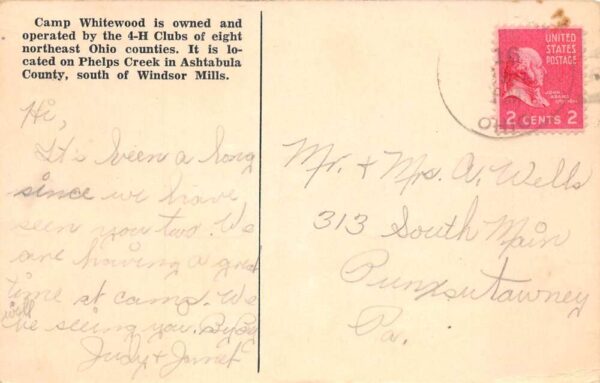 Camp Whitewood is owned and
operated by the 4-H Clubs of eight
northeast Ohio counties. It is lo-
cated on Phelps Creek in Ashtabula
County, south of Windsor Mills.
Hi,
It's been a long
since we have
seen you two. We
are having a great
time at camp. We
will
be seeing you. By By
Judy & Janet
UNITED
STATES
POSTAGE
JOHN
ADAMS
2 CENTS 2
OHIO
Mr. + Mrs. A. Wells
313 South Main
Punxsutawney
Pa.